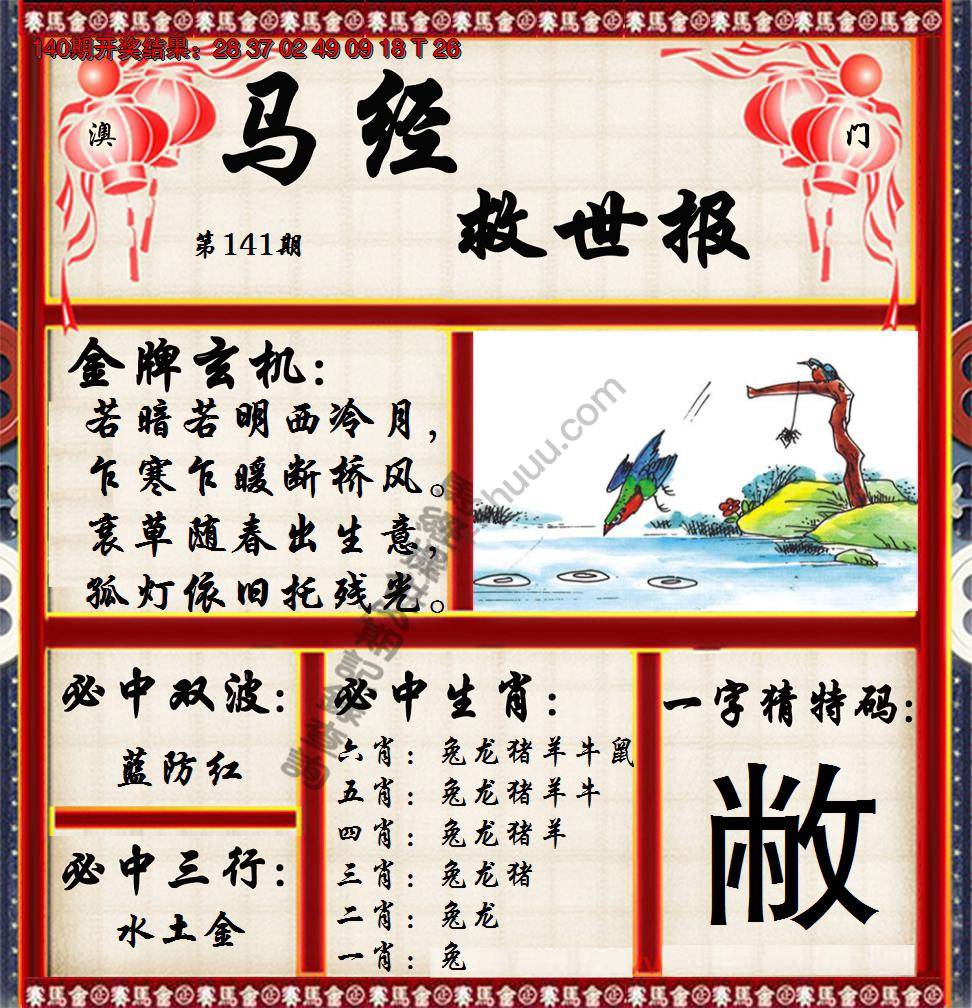 140期开奖结果：28 37 02 49 09 18 T 26
澳
门
马经
救世报
第141期
金牌玄机：
若暗若明西冷月，
乍寒乍暖断桥风。
衰草随春出生意，
孤灯依旧托残光。
必中双波：
蓝防红
必中三行：
水土金
必中生肖：
六肖：兔龙猪羊牛鼠
五肖：兔龙猪羊牛
四肖：兔龙猪羊
三肖：兔龙猪
二肖：兔龙
一肖：兔
一字猜特码：
敝